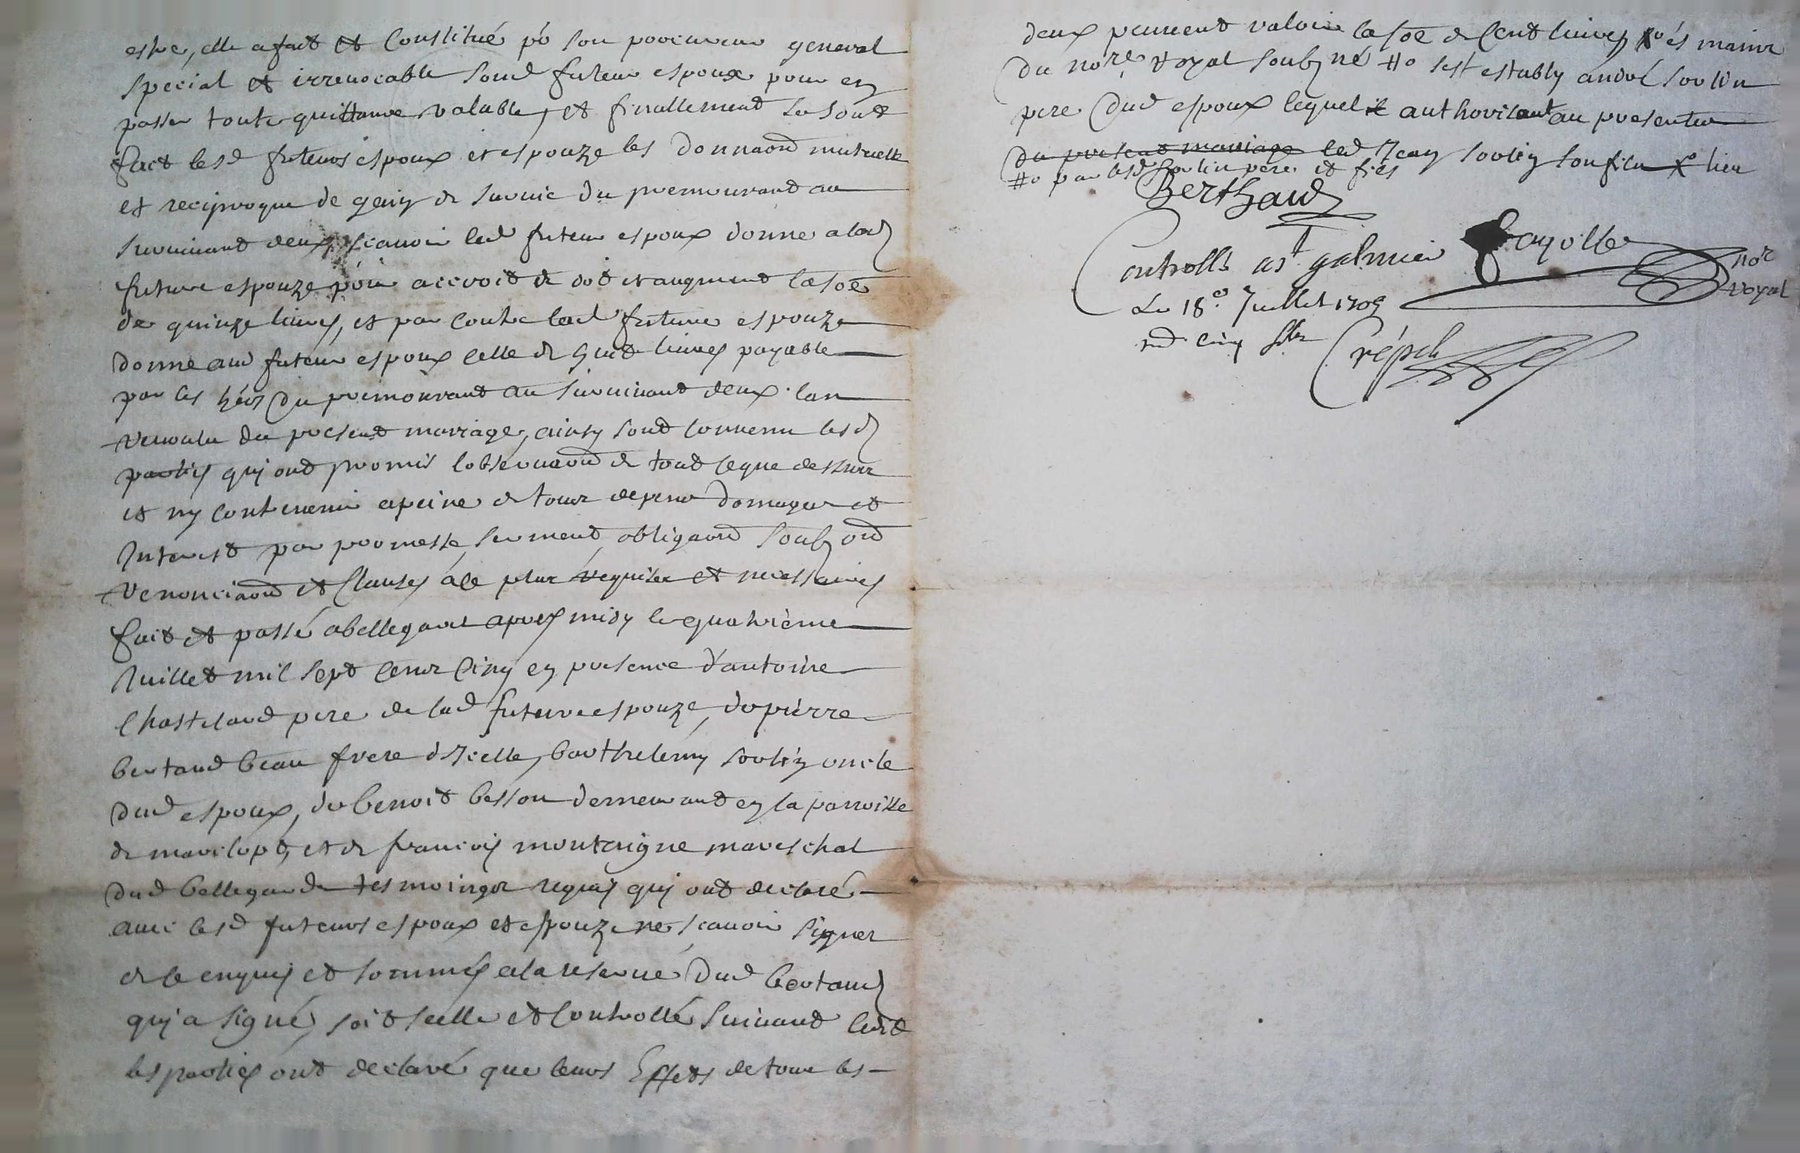 estre, elle a fait et Constitué po son procureur general
special et irrevocable sond futeur espoux pour en
passer toute quittance valable, et finallement se sont
fait lesd futeurs espoux et espouze les donnaon mutuelle
et reciproque de gaing de survie du premourant au
survivant deux, scavoir led futeur espoux donne a lad
future espouze pour accroit de dot et augment la soe
de quinze livres, et par contre lad future espouze
donne aud futeur espoux celle de huit livres payable
par les hers du premourant au survivant deux lan
revoulu du present mariage, ainsy sont convenu lesd
parties qui ont promis lobservaon de tout ceque dessus
et ny contrevenir apeine de tous despens domages et
Interest par promesse, serment, obligaon soubz on
renonciaon et Clauses ále plus requises et necessaires
fait et passé abellegarde apres midy le quatrième
Juillet mil sept cens Cinq en presence d'antoine
Chasteland pere de lad future espouze, de pierre
bertaud beau frere d'Icelle, barthelemy soulin oncle
dud espoux, de benoit besson demeurant en la parroisse
de marclopt, et de francois montaigne mareschal
dud bellegarde tesmoingz requis qui ont declaré
avec lesd futeurs espoux et espouze ne scavoir signer
de ce enquis et sommés ala reserve dud bertaud
qui a signé, soit scellé et Controllé suivant Ledt
les parties ont declaré que leurs Effets de tous les
deux peuvent valoir la soe de Cent livres es mains
du nore royal soubzné #o sest estably andré soulin
pere dud espoux lequel il authorisant au presenter
du present mariage led Jean soulin son filz lieu
#o par lesd soulin pere et fils
Berthaud
Controllé a st galmier fayolle nore royal
Le 18e Juillet 1705
rd cinq sols Crépet